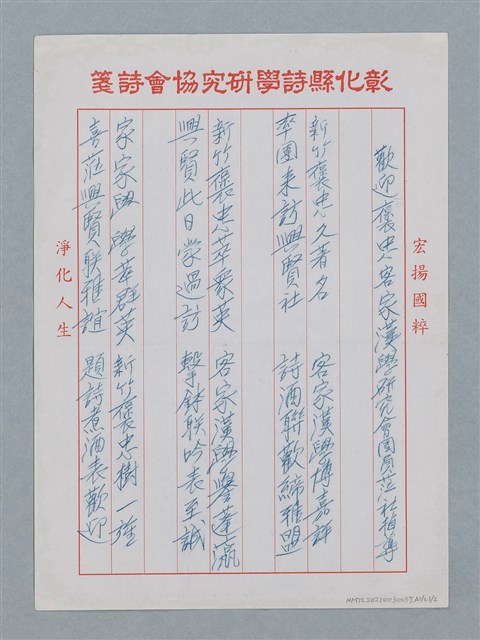 彰化縣詩學研究協會詩箋
宏揚國粹
歡迎褒忠客家漢學研究會團員蒞社指導
新竹褒忠久著名 客家漢學博嘉評
率團來訪興賢社 詩酒聯歡締雅盟
新竹褒忠萃眾英 客家漢學譽蓬瀛
興賢此日蒙過訪 擊鉢聯吟表至誠
客家漢學萃群英 新竹褒忠樹一旌
喜蒞興賢聯雅誼 題詩煮酒表歡迎
淨化人生